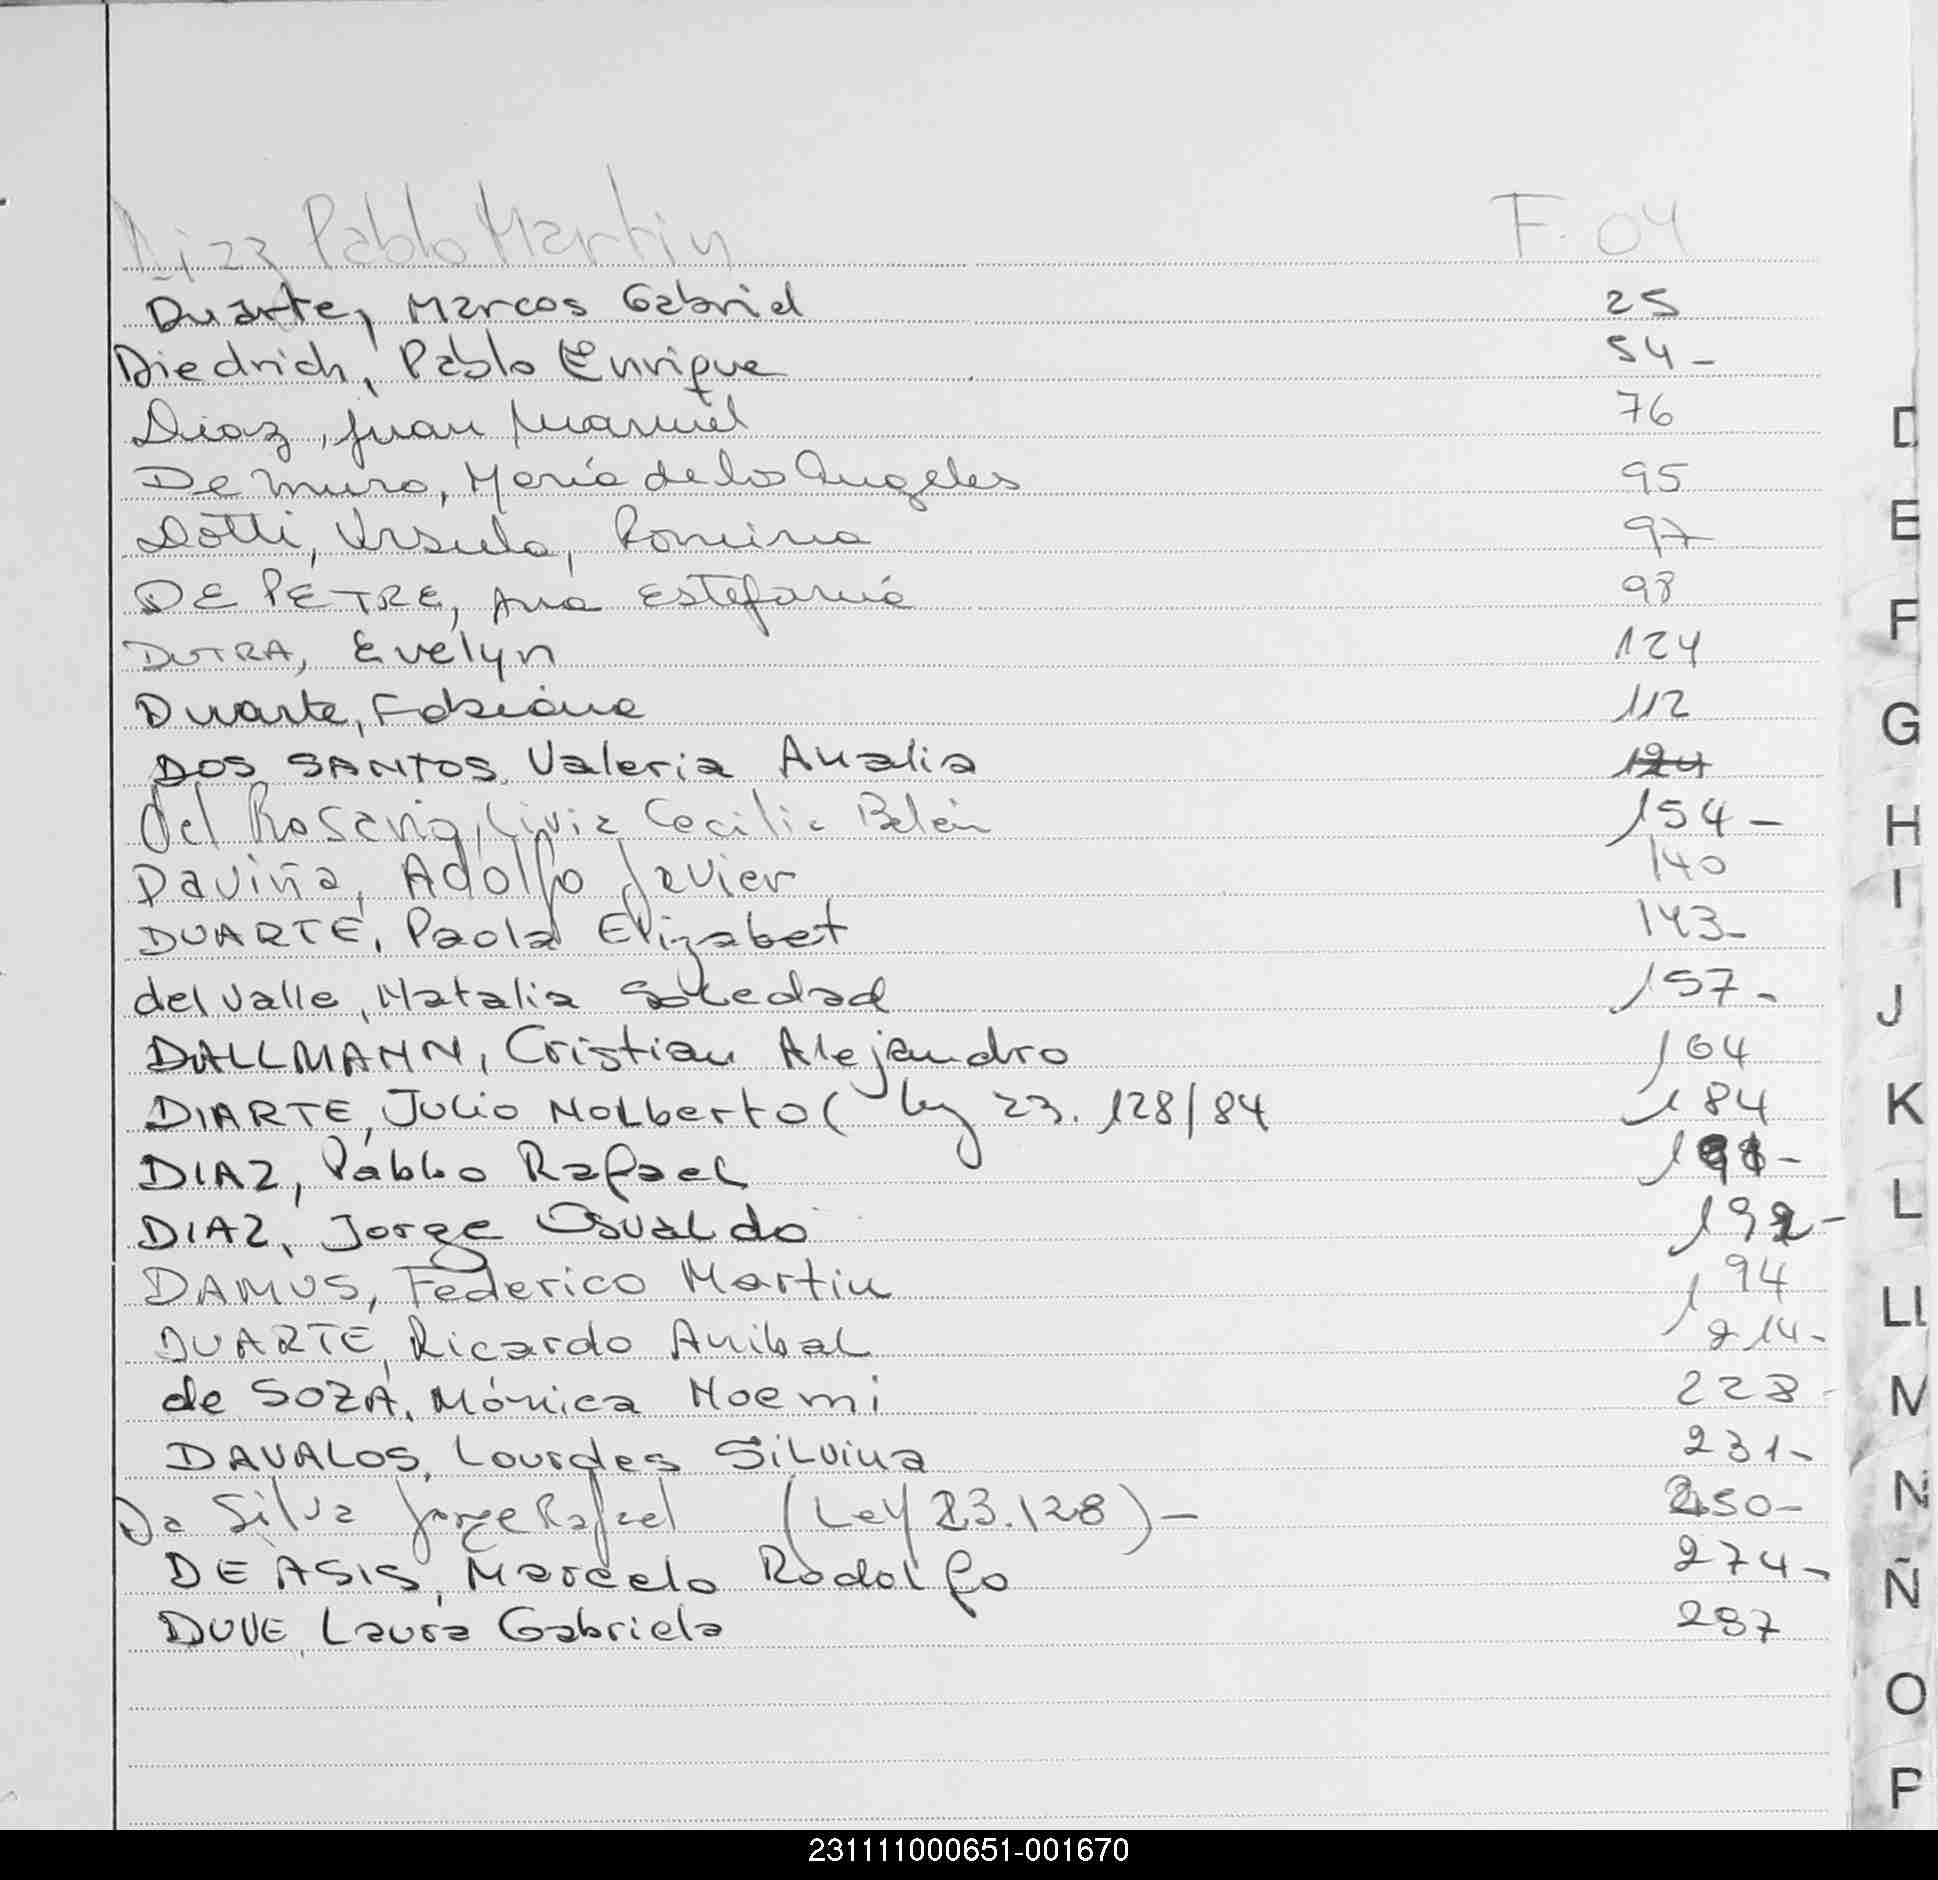 Diaz Pablo Martin F. 04
Duarte, Marcos Gabriel 25
Diedrich, Pablo Enrique 54-
Diaz, Juan Manuel 76
De Muro, María de los Angeles 95
Dotti, Ursula, Romina 97
DE PETRE, Ana Estefania 98
DUTRA, Evelyn 124
Duarte, Fabiana 112
DOS SANTOS, Valeria Analia 124
del Rosario, Livia Cecilia Belén 154-
Daviña, Adolfo Javier 140
DUARTE, Paola Elizabet 143-
del Valle, Natalia Soledad 157-
DALLMANN, Cristian Alejandro 164
DIARTE, Julio Nolberto ( ley 23.128/84 184
DIAZ, Pablo Rafael
DIAZ, Jorge Osvaldo 192-
DAMUS, Federico Martin 194
DUARTE, Ricardo Anibal 214-
de SOZA, Mónica Noemi 223-
DAVALOS, Lourdes Silvina 231-
Da Silva Jorge Rafael (Ley 23.128)- 250-
DE ASIS, Marcelo Rodolfo 274-
DUVE, Laura Gabriela 297
D
E
F
G
H
I
J
K
L
LL
M
N
Ñ
O
P
231111000651-001670